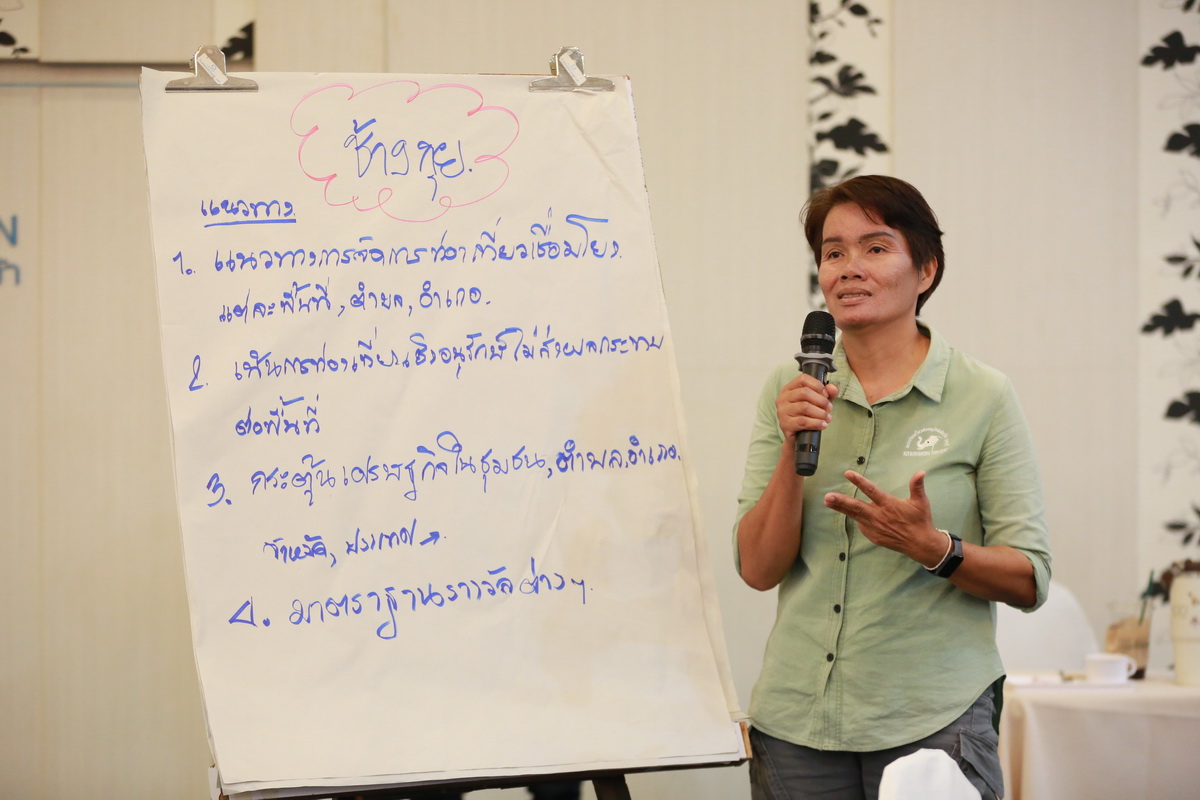 ช้างกุย.
แนวทาง
1. แนวทางการจัดการท่องเที่ยวเชื่อมโยง.
แต่ละพื้นที่, ตำบล, อำเภอ.
2. เน้นการท่องเที่ยวเชิงอนุรักษ์ไม่ส่งผลกระทบ
ต่อพื้นที่
3. กระตุ้นเศรษฐกิจในชุมชน, ตำบล, อำเภอ.
จังหวัด, ประเทศ →.
4. มาตราฐานรางวัลต่างๆ.